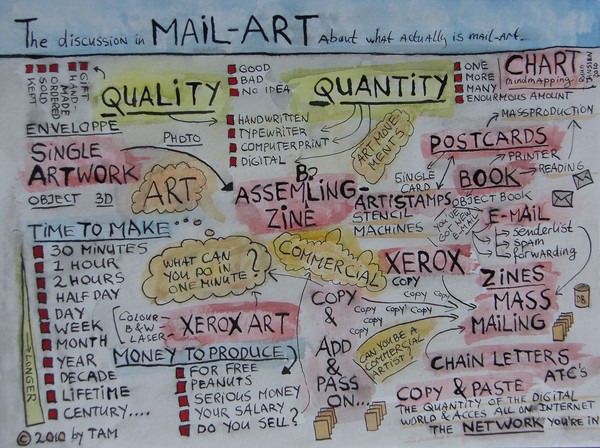 The discussion in MAIL-ART About what actually is mail-art..
GIFT
HAND-MADE
ORDERED
SOLD
KEPT
QUALITY
GOOD
BAD
NO IDEA
QUANTITY
ONE
MORE
MANY
ENOURMOUS AMOUNT
CHART
mindmapping
RUUD JANSSEN 2010
ENVELOPPE
PHOTO
HANDWRITTEN
TYPEWRITER
COMPUTERPRINT
DIGITAL
ART MOVE
MENTS
MASSPRODUCTION
POSTCARDS
PRINTER
SINGLE
ARTWORK
OBJECT 3D
ART
ASSEMLING-
ZINE
SINGLE
CARD
BOOK
READING
OBJECT BOOK
ARTISTAMPS
STENCIL
MACHINES
YOU'VE
GOT NEW
E-MAIL
E-MAIL
senderlist
spam
forwarding
TIME TO MAKE...
30 MINUTES
1 HOUR
2 HOURS
HALF DAY
DAY
WEEK
MONTH
YEAR
DECADE
LIFETIME
CENTURY....
LONGER
WHAT CAN
YOU DO IN
ONE MINUTE
?
COMMERCIAL
XEROX
COPY
COPY COPY
COPY COPY
COPY COPY
ZINES
MASS
MAILING
DB
COLOUR-
B&W
LASER-
XEROX ART
COPY
&
ADD
&
PASS
ON...
CAN YOU BE A
COMMERCIAL
ARTIST?
MONEY TO PRODUCE
FOR FREE
PEANUTS
SERIOUS MONEY
YOUR SALARY
DO YOU SELL?
CHAIN LETTERS
ATC's
COPY & PASTE
THE QUANTITY OF THE DIGITAL
WORLD & ACCES ALL ON INTERNET
THE NETWORK YOU'RE IN
© 2010 by TAM